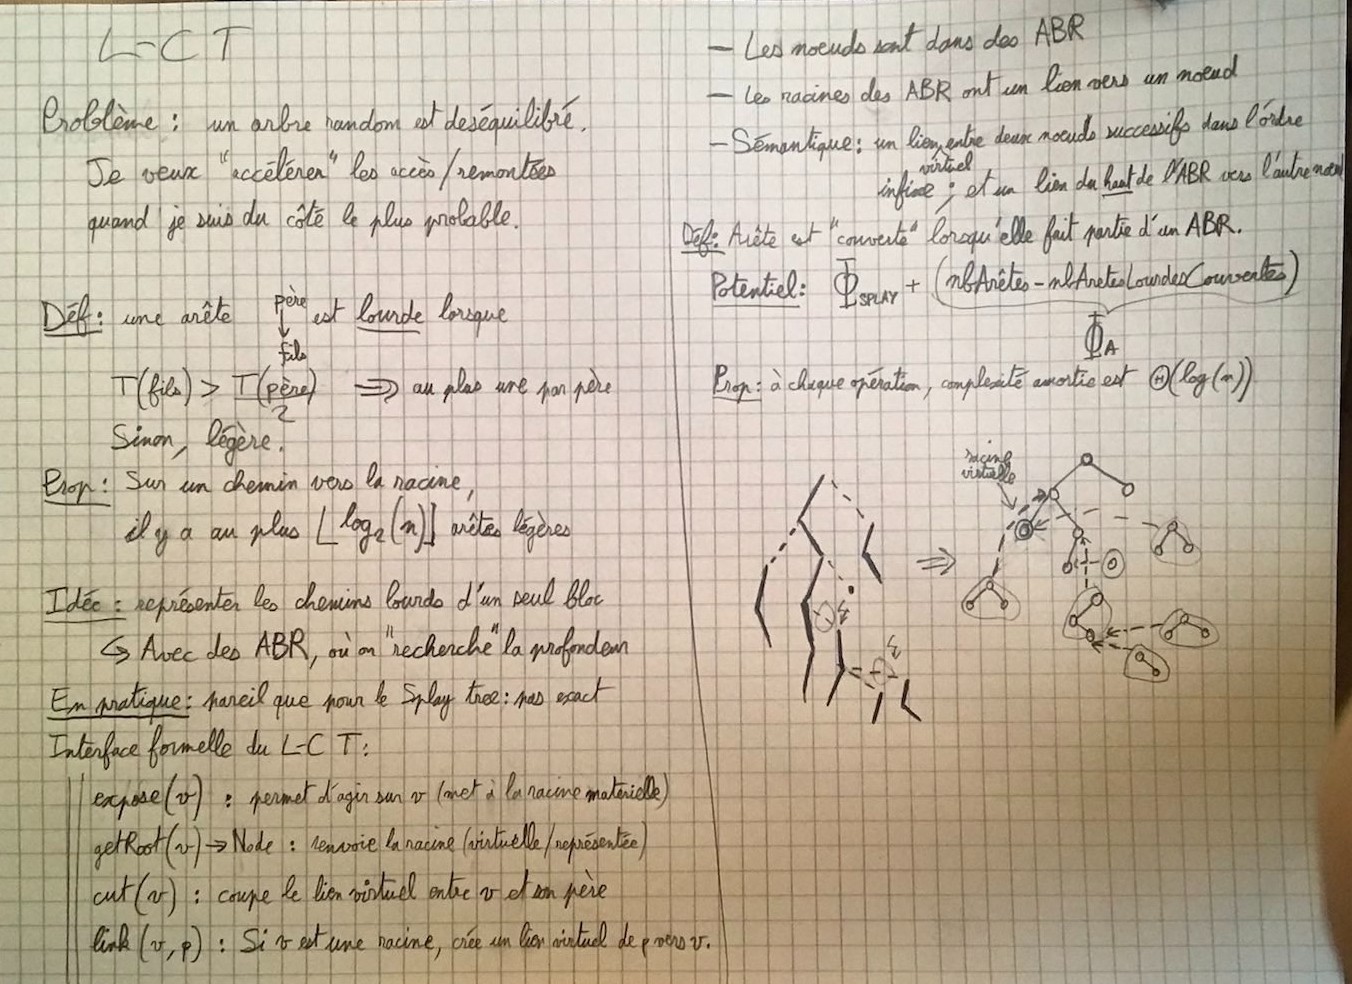 L-C T
Problème : un arbre random est deséquilibré.
Je veux "accélérer" les accès/remontées
quand je suis du côté le plus probable.
Déf : une arête père ↓ fils est lourde lorsque
T(fils) > T(père)/2 ⟹ au plus une par père
Sinon, légère.
Prop : Sur un chemin vers la racine,
il y a au plus ⌊log₂(n)⌋ arêtes légères
Idée : représenter les chemins lourds d'un seul bloc
↪ Avec des ABR, où on "recherche" la profondeur
En pratique : pareil que pour le Splay tree : pas exact
Interface formelle du L-C T :
expose(v) : permet d'agir sur v (met à la racine matérielle)
getRoot(v) → Node : renvoie la racine (virtuelle/représentée)
cut(v) : coupe le lien virtuel entre v et son père
link (v, p) : Si v est une racine, crée un lien virtuel de p vers v.
— Les noeuds sont dans des ABR
— Les racines des ABR ont un lien vers un noeud
— Sémantique : un lien virtuel entre deux noeuds successifs dans l'ordre
infixe ; et un lien du haut de l'ABR vers l'autre noeud
Déf : Arête est "couverte" lorsqu'elle fait partie d'un ABR.
Potentiel : Φ_SPLAY + (nbArêtes - nbAretesLourdesCouvertes)
Φ_A
Prop : à chaque opération, complexité amortie est Θ(log(n))
racine
virtuelle
⟹